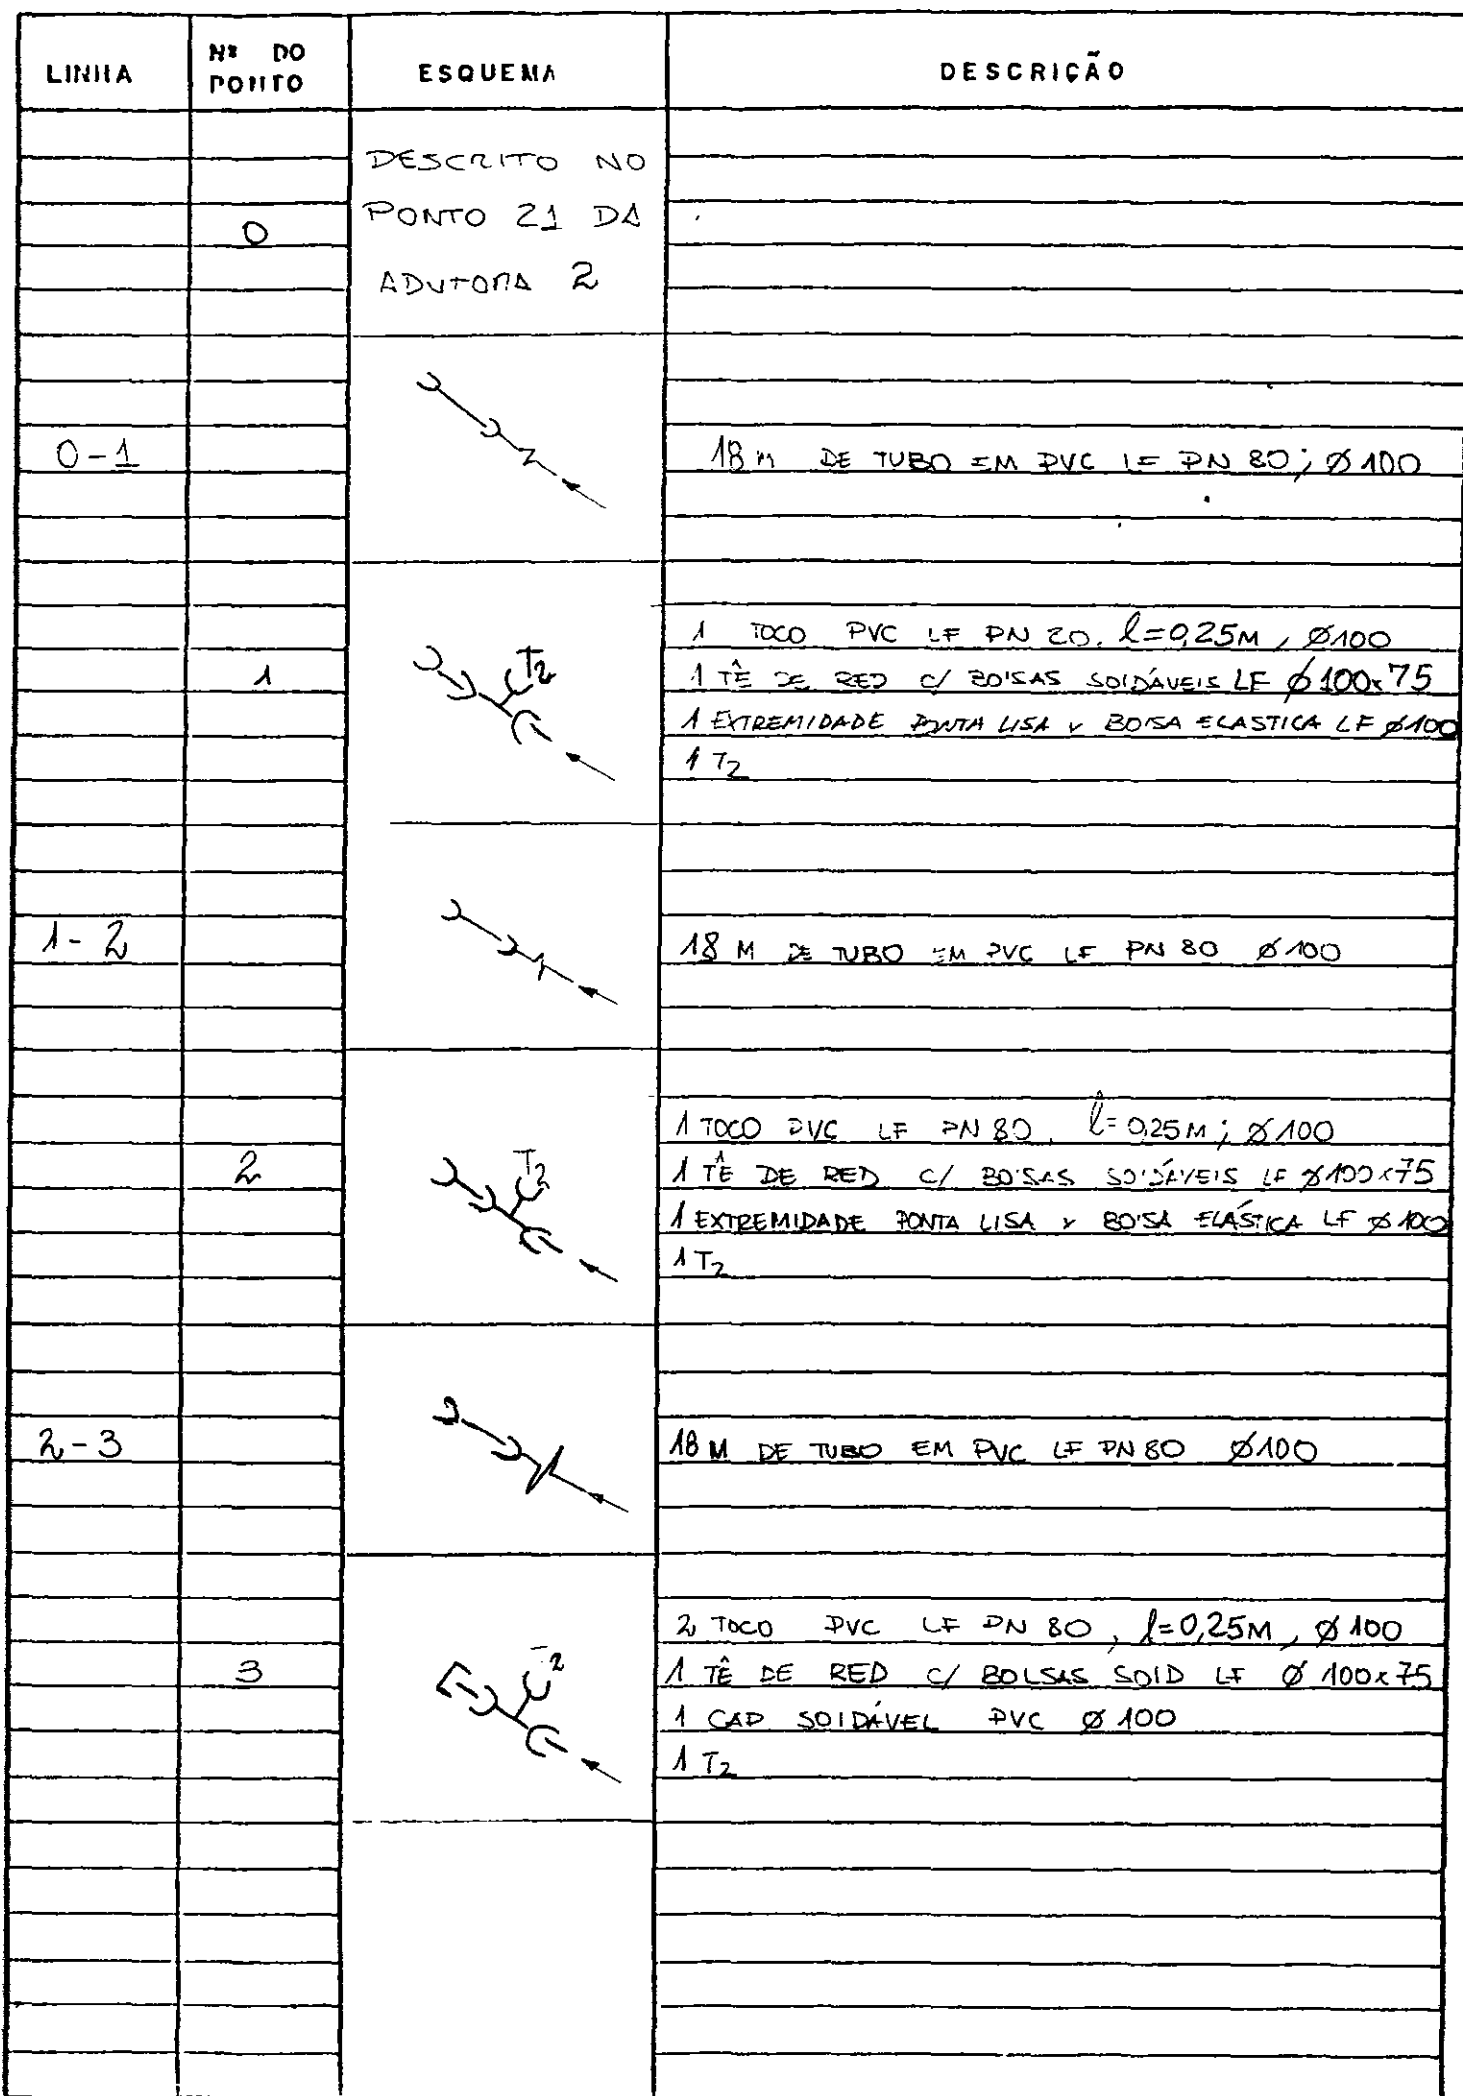 LINHA
Nº DO PONTO
ESQUEMA
DESCRIÇÃO
0
DESCRITO NO
PONTO 21 DA
ADUTORA 2
0-1
18 m DE TUBO EM PVC LF PN 80; Ø100
1
T2
1 TOCO PVC LF PN 20, l=0,25M, Ø100
1 TÊ DE RED C/ BOLSAS SOLDÁVEIS LF Ø100x75
1 EXTREMIDADE PONTA LISA x BOLSA ELASTICA LF Ø100
1 T2
1-2
18 M DE TUBO EM PVC LF PN 80 Ø100
2
T2
1 TOCO PVC LF PN 80, l=0,25M; Ø100
1 TÊ DE RED C/ BOLSAS SOLDÁVEIS LF Ø100x75
1 EXTREMIDADE PONTA LISA x BOLSA ELÁSTICA LF Ø100
1 T2
2-3
18 M DE TUBO EM PVC LF PN 80 Ø100
3
T2
2 TOCO PVC LF PN 80, l=0,25M, Ø100
1 TÊ DE RED C/ BOLSAS SOLD LF Ø 100x75
1 CAP SOLDÁVEL PVC Ø 100
1 T2